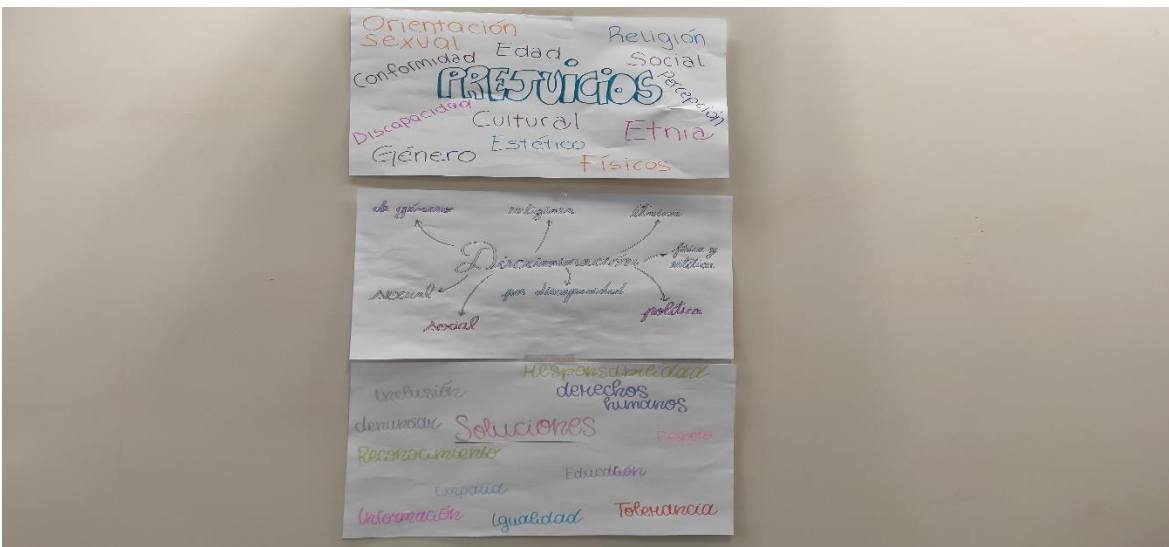 Orientación
sexual
Edad
Religión
Conformidad
Social
PREJUICIOS
Percepción
Discapacidad
Cultural
Etnia
Género
Estético
Físicos
de género
religiosa
étnica
Discriminación
física y
estética
sexual
por discapacidad
política
social
Responsabilidad
Inclusión
derechos
humanos
denunciar
Soluciones
Respeto
Reconocimiento
Educación
Empatía
Información
Igualidad
Tolerancia